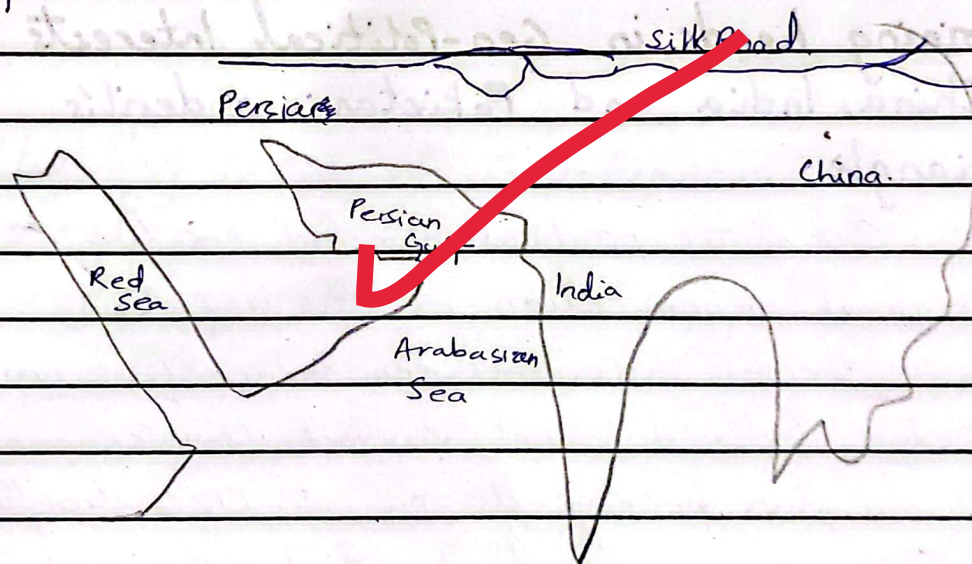 Silk Road
Persian
China.
Persian
Gulf
Red
Sea
India
Arabasian
Sea